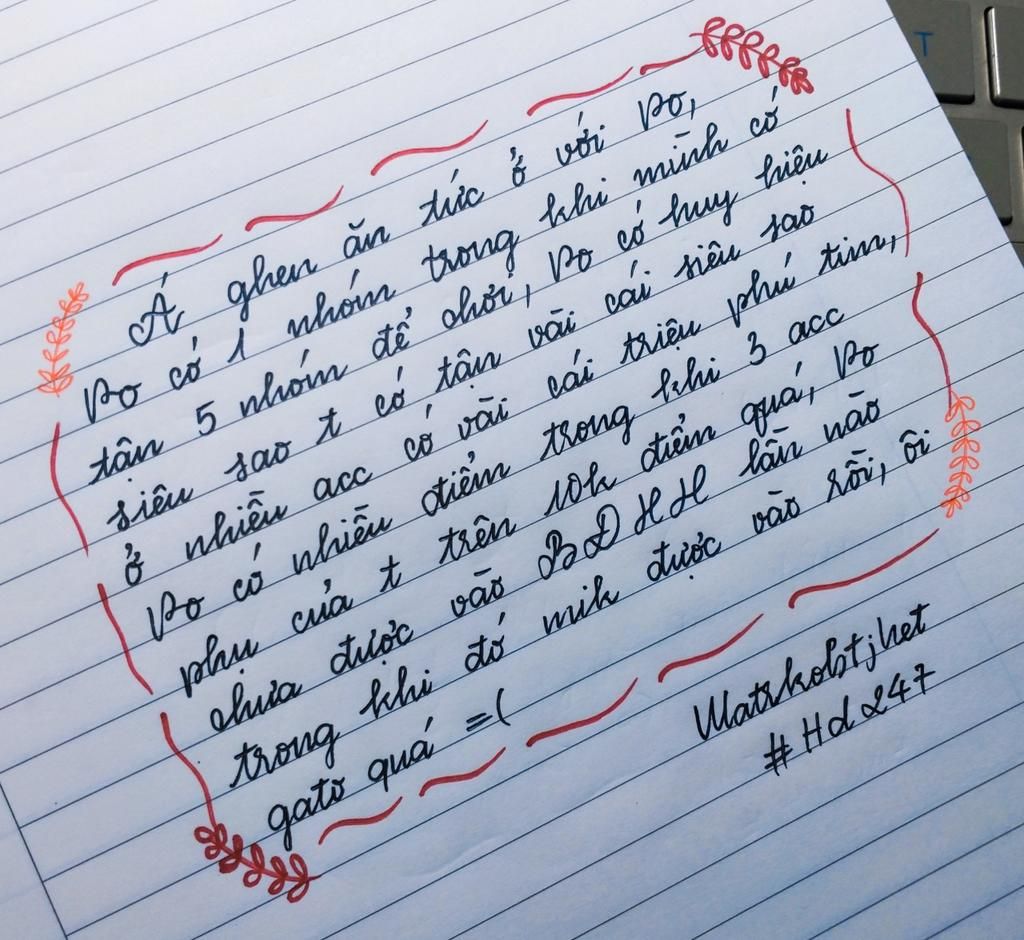 Á ghen ăn tức ở với Po,
Po có 1 nhóm trong khi mình có
tận 5 nhóm để chơi, Po có huy hiệu
siêu sao t có tận vài cái siêu sao
ở nhiều acc có vài cái triệu phú tin,
Po có nhiều điểm trong khi 3 acc
phụ của t trên 10k điểm quá, Po
chưa được vào BDHH lần nào
trong khi đó mik được vào rồi, ôi
gato quá =(
#Hd247
T